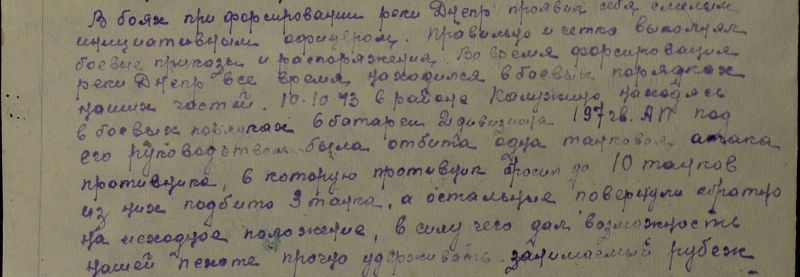 В боях при форсировании реки Днепр проявил себя смелым
инициативным офицером. Правильно и четко выполнял
боевые приказы и распоряжения. Во время форсирования
реки Днепр все время находился в боевых порядках
наших частей. 10.10.43 в районе Колужино находясь
в боевых порядках 6 батареи 2 дивизиона 197 гв. АП под
его руководством была отбита одна танковая атака
противника, в которую противник бросил до 10 танков
из них подбито 3 танка, а остальные повернули обратно
на исходное положение, в силу чего дал возможность
нашей пехоте прочно удерживать занимаемый рубеж